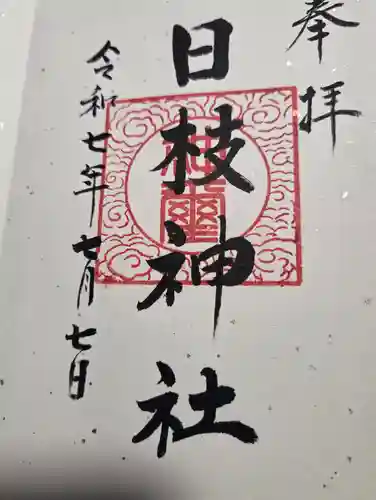 奉拝
日枝神社
令和七年七月七日